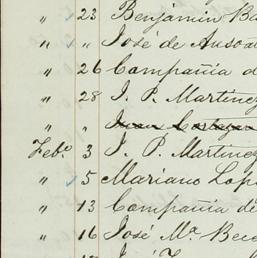 " 23 Benjamin Ba
" " José de Anso
" 26 Compañia d
" 28 J. P. Martinez
" " Juan
Feb.o 3 J. P. Martinez
" 5 Mariano Lop
" 13 Compañia de
" 16 José Ma. Bec